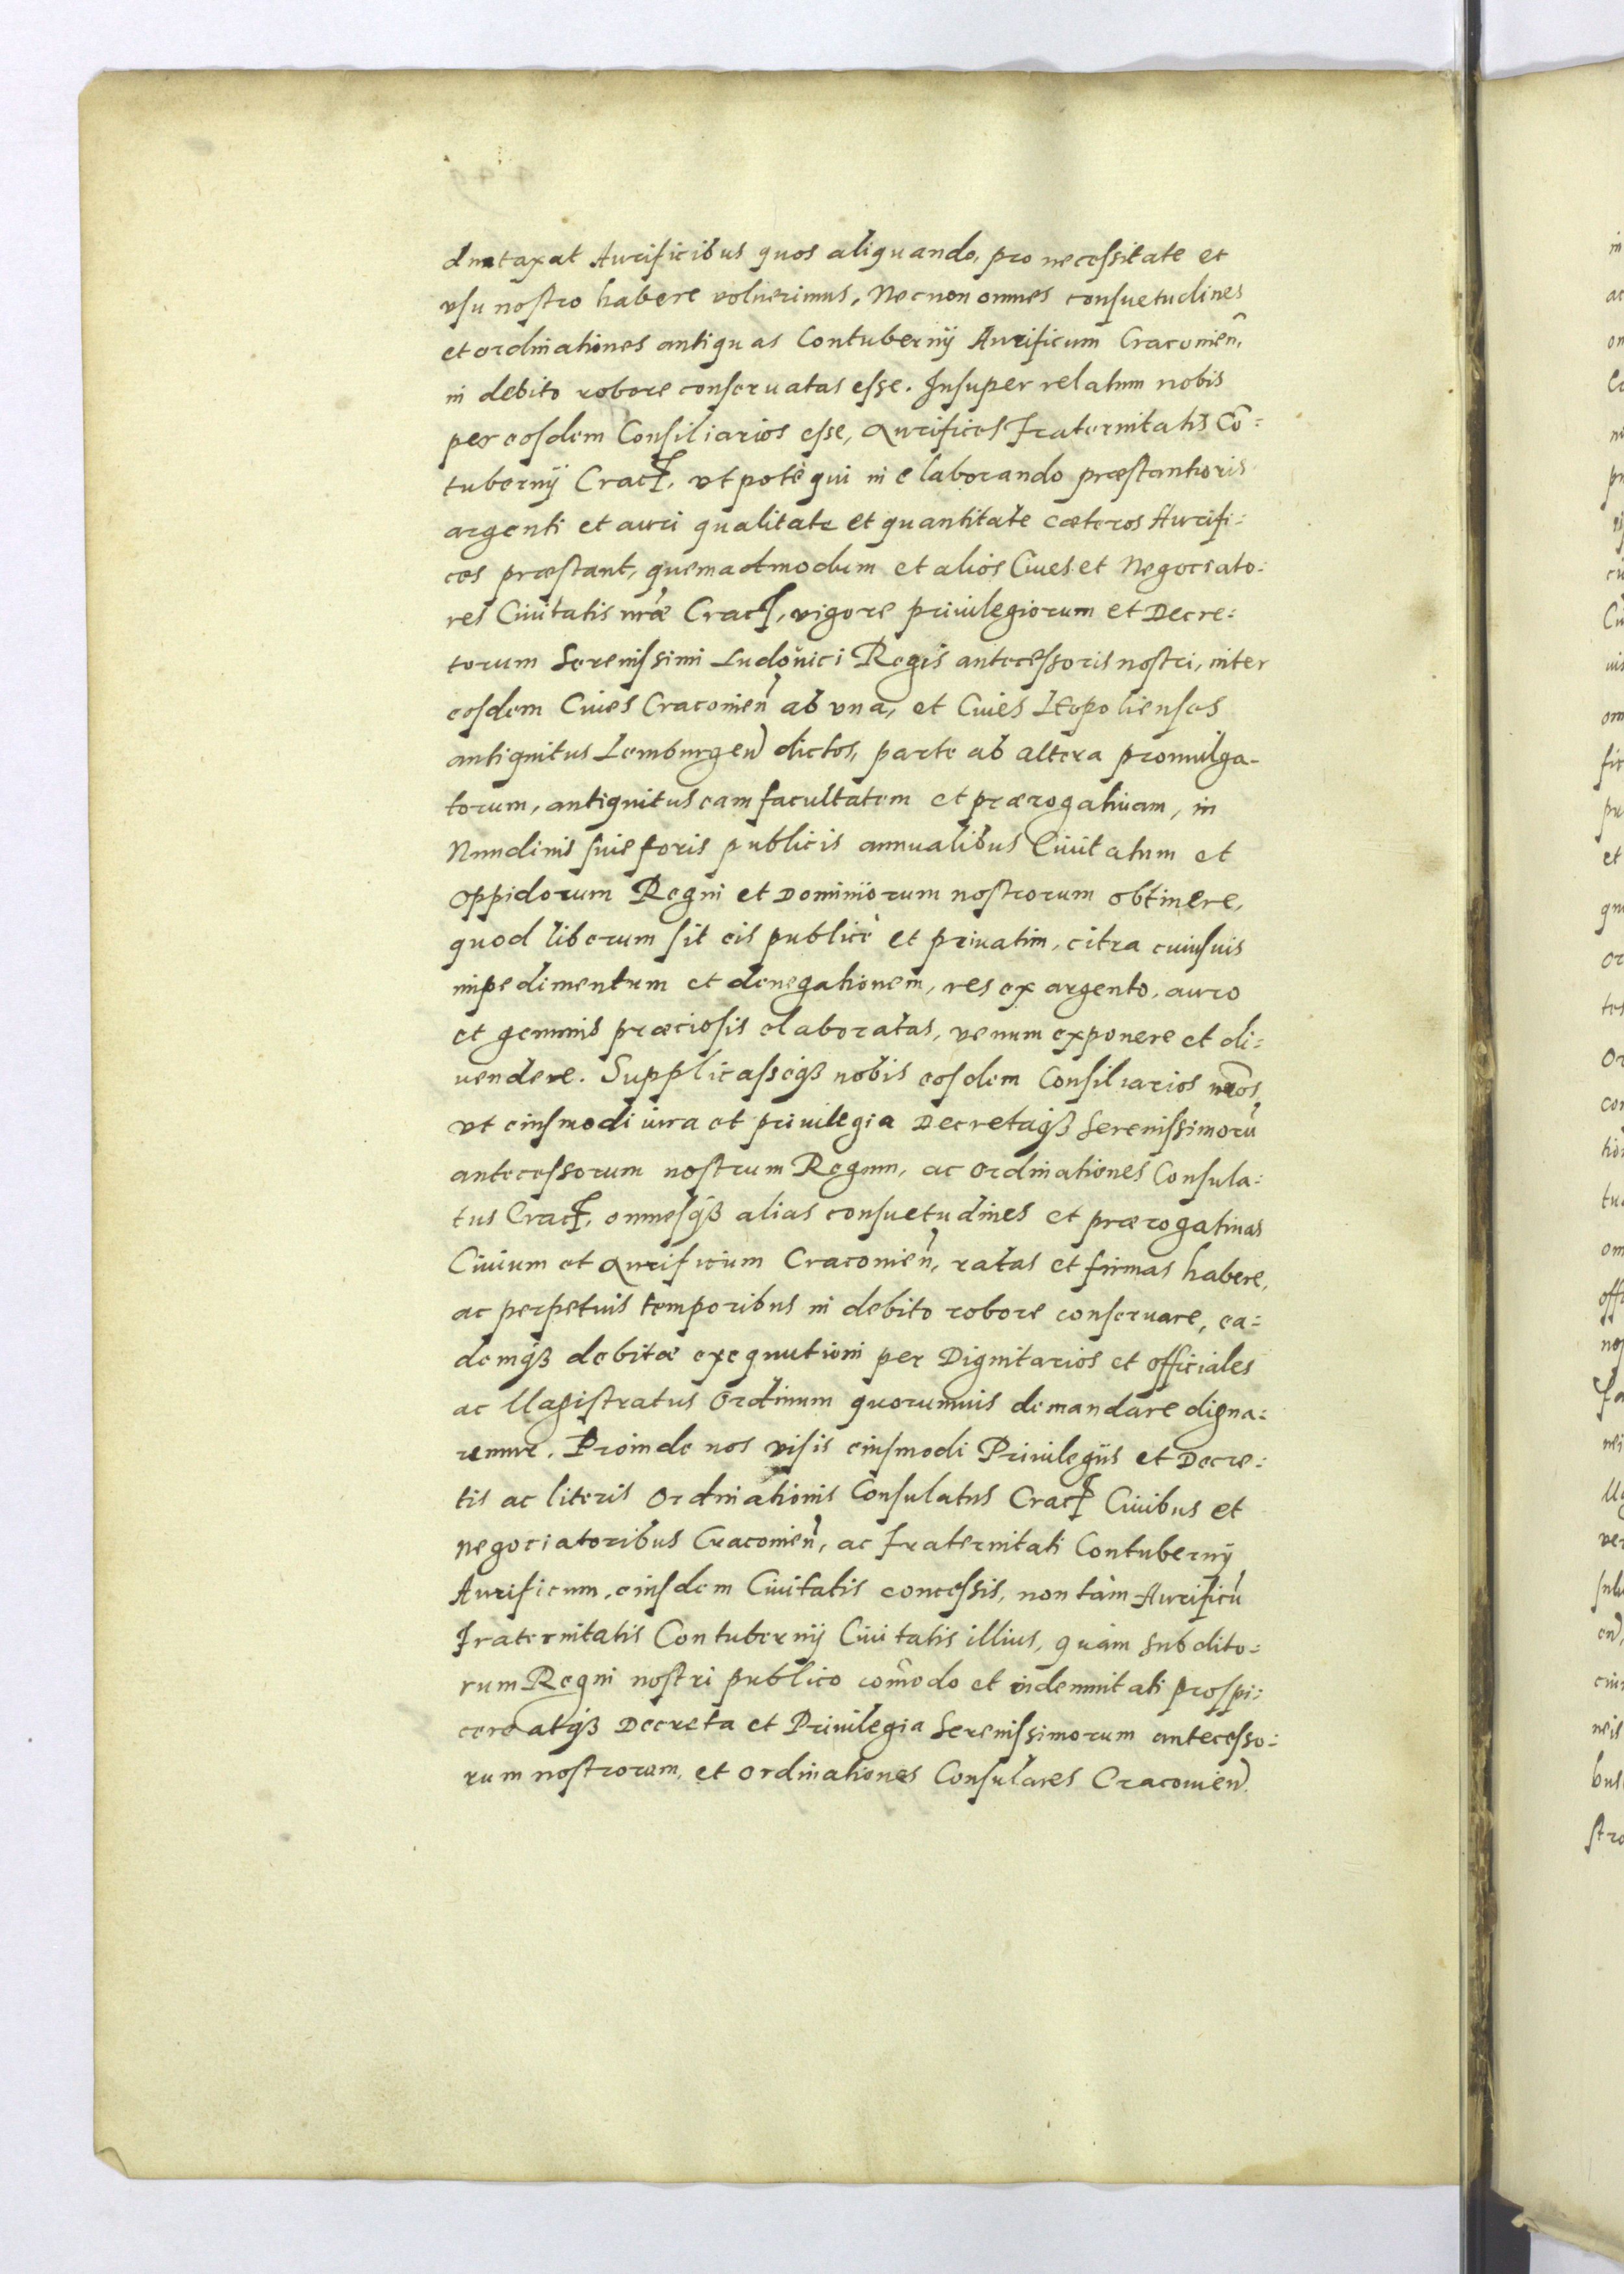 duntaxat Aurificibus quos aliquando, pro necessitate et
vsu nostro habere voluerimus, Necnon omnes consuetudines
et ordinationes antiquas Contubernij Aurificum Cracouien̄,
in debito robore conseruatas esse. Insuper relatum nobis
per eosdem Consiliarios esse, Aurifices Fraternitatis Cō:
tubernij Crac. vt potè qui in elaborando præstantioris
argenti et auri qualitate et quantitate cæteros Aurifi:
ces præstant, quemadmodum et alios Ciues et Negociato:
res Ciuitatis nr̄æ Crac, vigore priuilegiorum et Decre:
torum Serenissimi Ludouici Regis antecessoris nostri, inter
eosdem Ciues Cracouien̄ ab vna, et Ciues Leopolienses
antiquitus Lemburgen̄ dictos, parte ab altera promulga-
torum, antiquitus eam facultatem et prærogatiuam, in
Nundinis siue foris publicis annualibus Ciuitatum et
oppidorum Regni et Dominiorum nostrorum obtinere,
quod liberum sit eis publicè et priuatim, citra cuiusuis
impedimentum et denegationem, res ex argento, auro
et gemmis præciosis elaboratas, venum exponere et di:
uendere. Supplicasseqꝫ nobis eosdem Consiliarios nr̄os,
vt eiusmodi iura et priuilegia Decretaqꝫ Serenissimorū
antecessorum nostrum Regum, ac ordinationes Consula:
tus Crac, omnesqꝫ alias consuetudines et prærogatiuas
Ciuium et Aurificum Cracouien̄, ratas et firmas habere,
ac perpetuis temporibus in debito robore conseruare, ea:
demqꝫ debitæ exequutioni per Dignitarios et officiales
ac Magistratus Ordinum quorumuis demandare digna:
remur. Proinde nos visis eiusmodi Priuilegijs et Decre:
tis ac literis Ordinationis Consulatus Crac Ciuibus et
negociatoribus Cracouien̄, ac Fraternitati Contubernij
Aurificum, eiusdem Ciuitatis concessis, non tàm Aurificū
Fraternitatis Contubernij Ciuitatis illius, quàm subdito:
rum Regni nostri publico com̄odo et indemnitati prospi:
cere atqꝫ Decreta et Priuilegia Serenissimorum antecesso:
rum nostrorum, et ordinationes Consulares Cracouien̄.